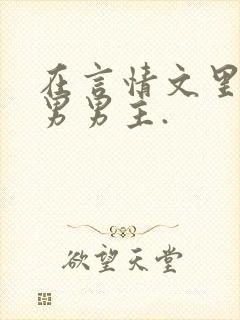 在言情文里
男男主.
欲望天堂